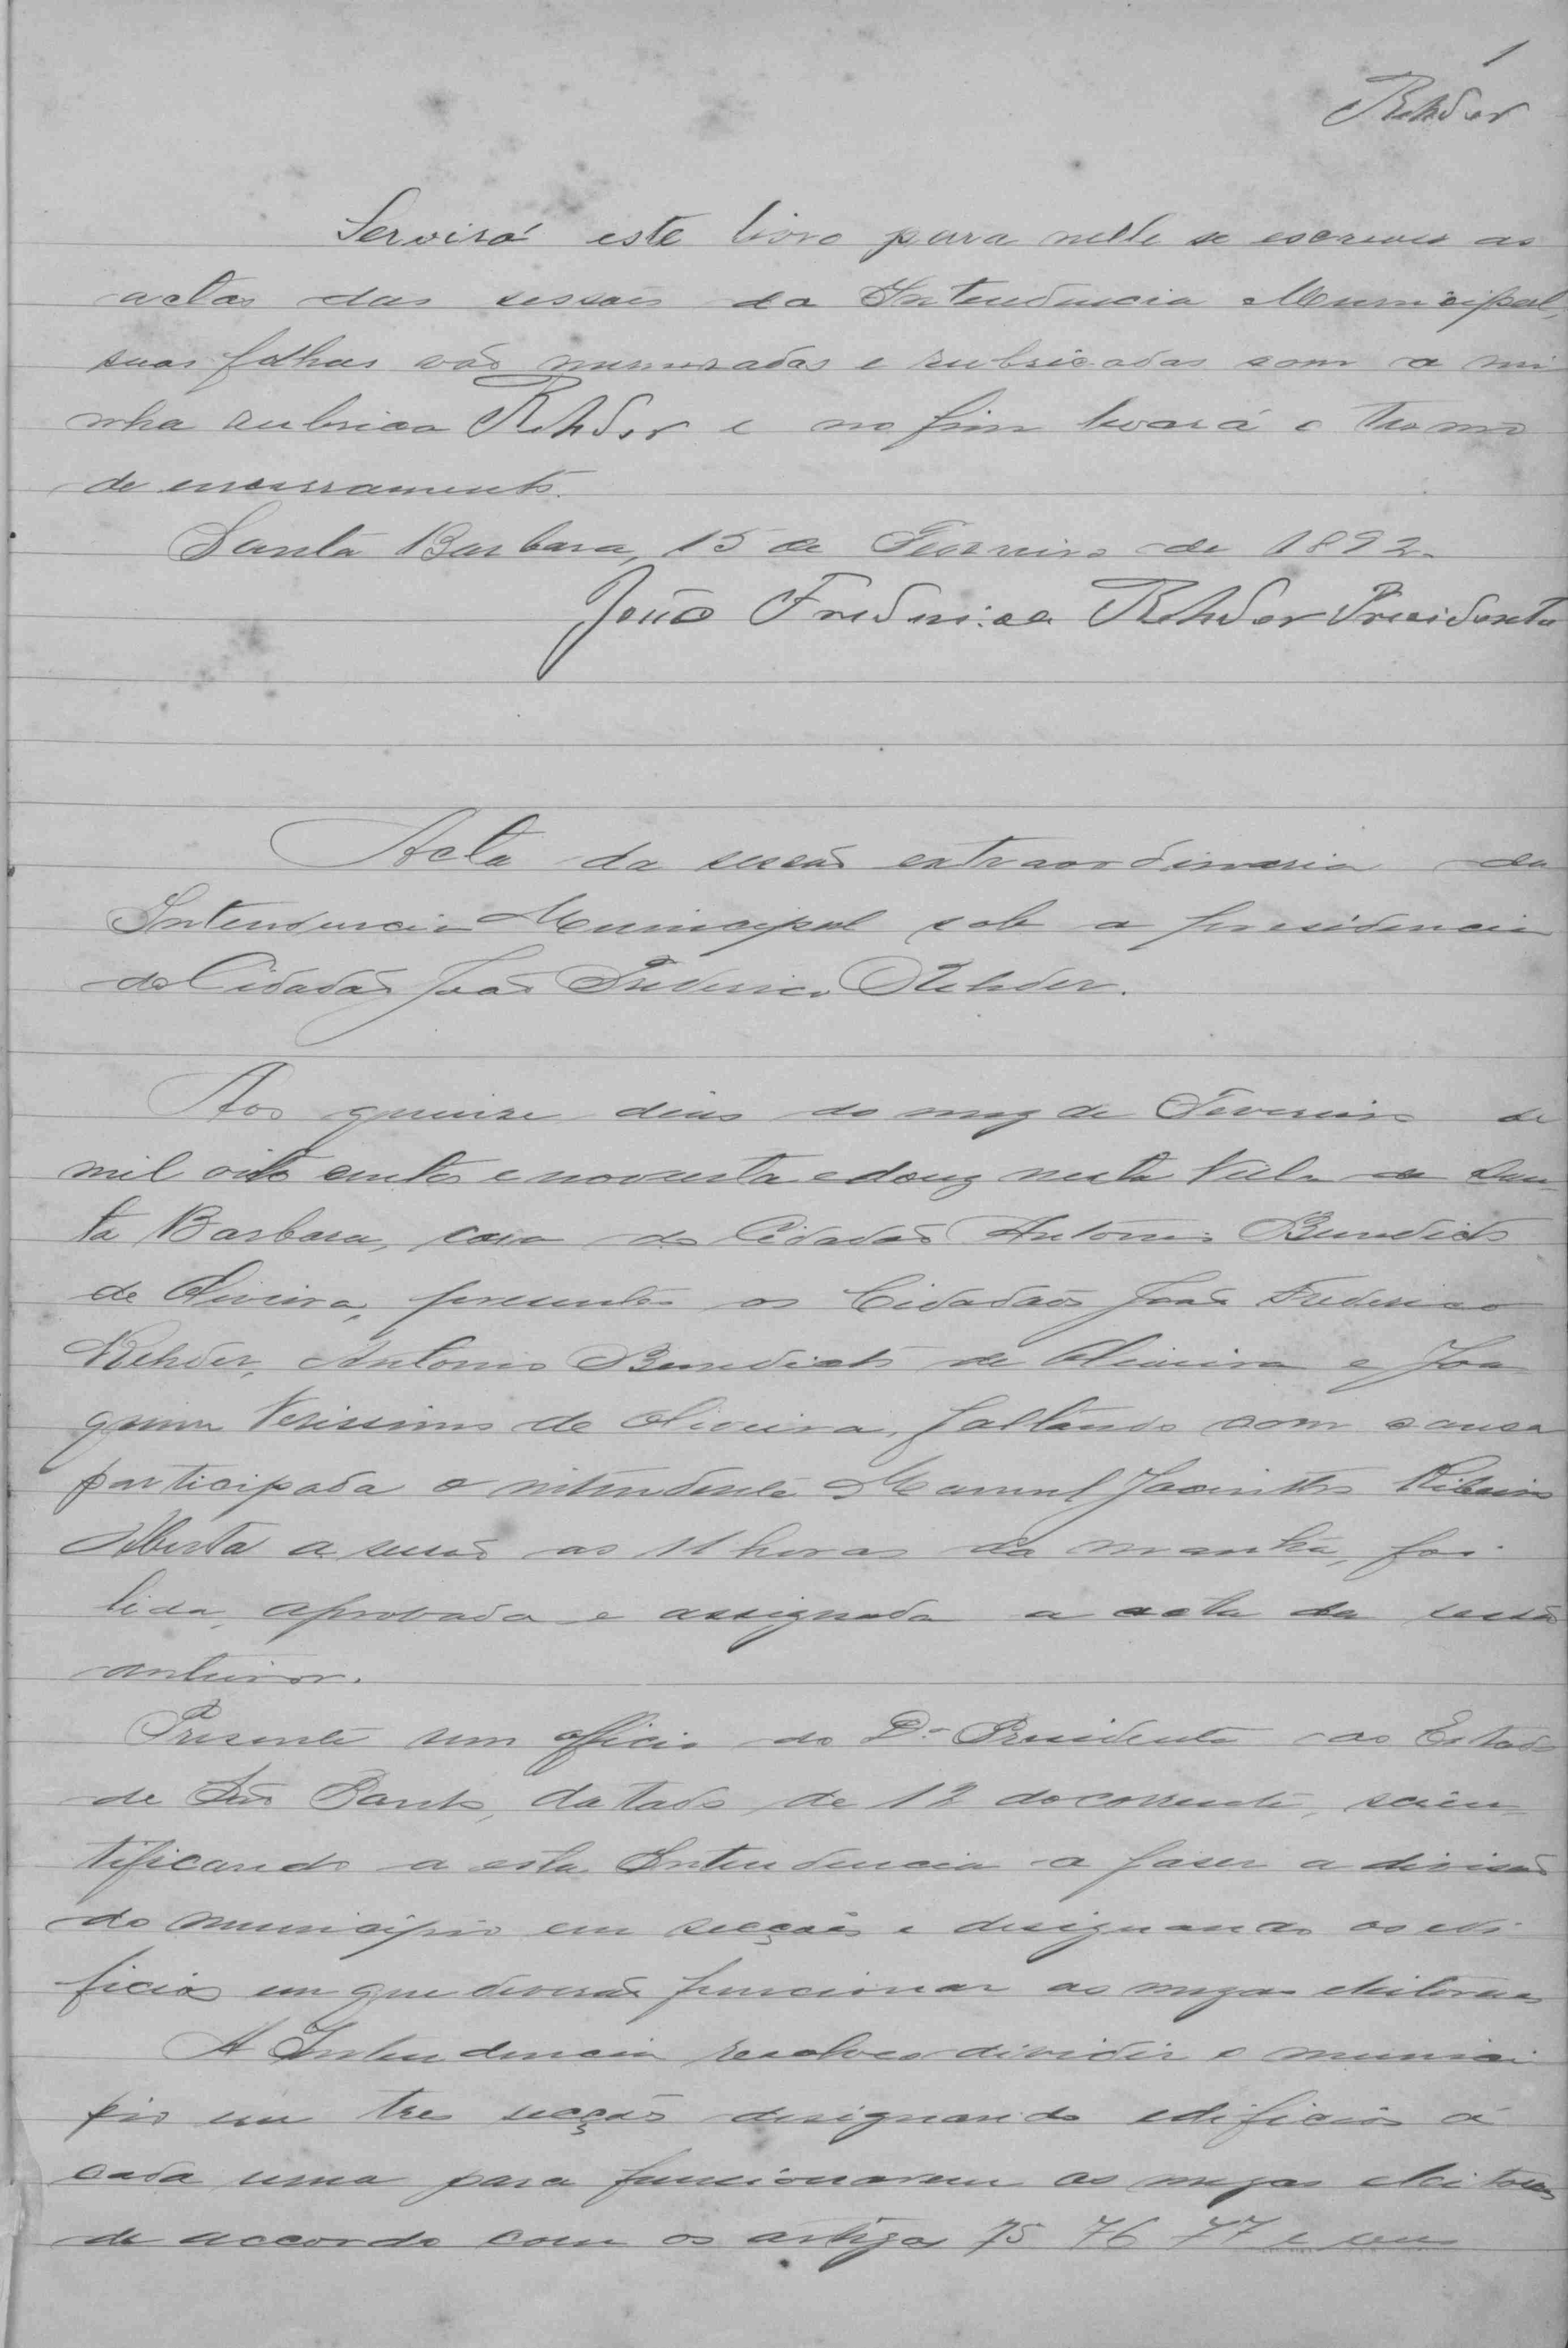 1
Rehder
Servirá este livro para nelle se escrever as
actas das sessões da Intendencia Municipal,
suas folhas vão numeradas e rubricadas com a mi
nha rubrica Rehder e no fim levará o termo
de encerramento.
Santa Barbara, 15 de Fevereiro de 1892.
João Frederico Rehder Presidente
Acta da sessão extraordinaria da
Intendencia Municipal sob a presidencia
do Cidadão João Frederico Rehder.
Aos quinze dias do mez de Fevereiro de
mil oito centos e noventa e douz nesta Villa de San
ta Barbara, casa do Cidadão Antonio Benedicto
de Oliveira, presentes os Cidadãos João Frederico
Rehder, Antonio Benedicto de Oliveira e Joa
quim Verissimo de Oliveira, faltando com causa
participada o intendente Manuel Jacintho Ribeiro
Aberta a sessão as 11 horas da manhã, foi
lida, aprovada e assignada a acta da sessão
anterior.
Presente um officio do Dr. Presidente do Estado
de São Paulo, datado de 12 do corrente, scien
tificando a esta Intendencia a faser a divisão
do municipio em secções e designando os edi
ficios em que deverão funcionar as mezas eleitoraes
A Intendencia resolveo dividir o munici
pio em tres secções designando edificios á
cada uma para funcionarem as mezas eleitoraes
de accordo com os artigos 75 76 77 e seus